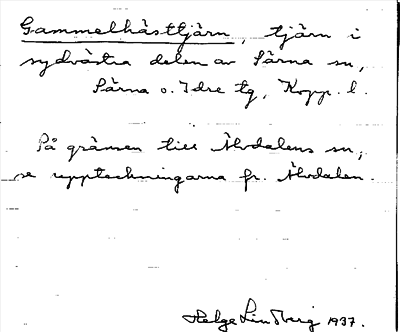 Gammelhästtjärn, tjärn i
sydvästra delen av Särna sn,
Särna o. Idre tg, Kopp. l.
På gränsen till Älvdalens sn,
se uppteckningarna fr. Älvdalen.
Helge Lindberg 1937.